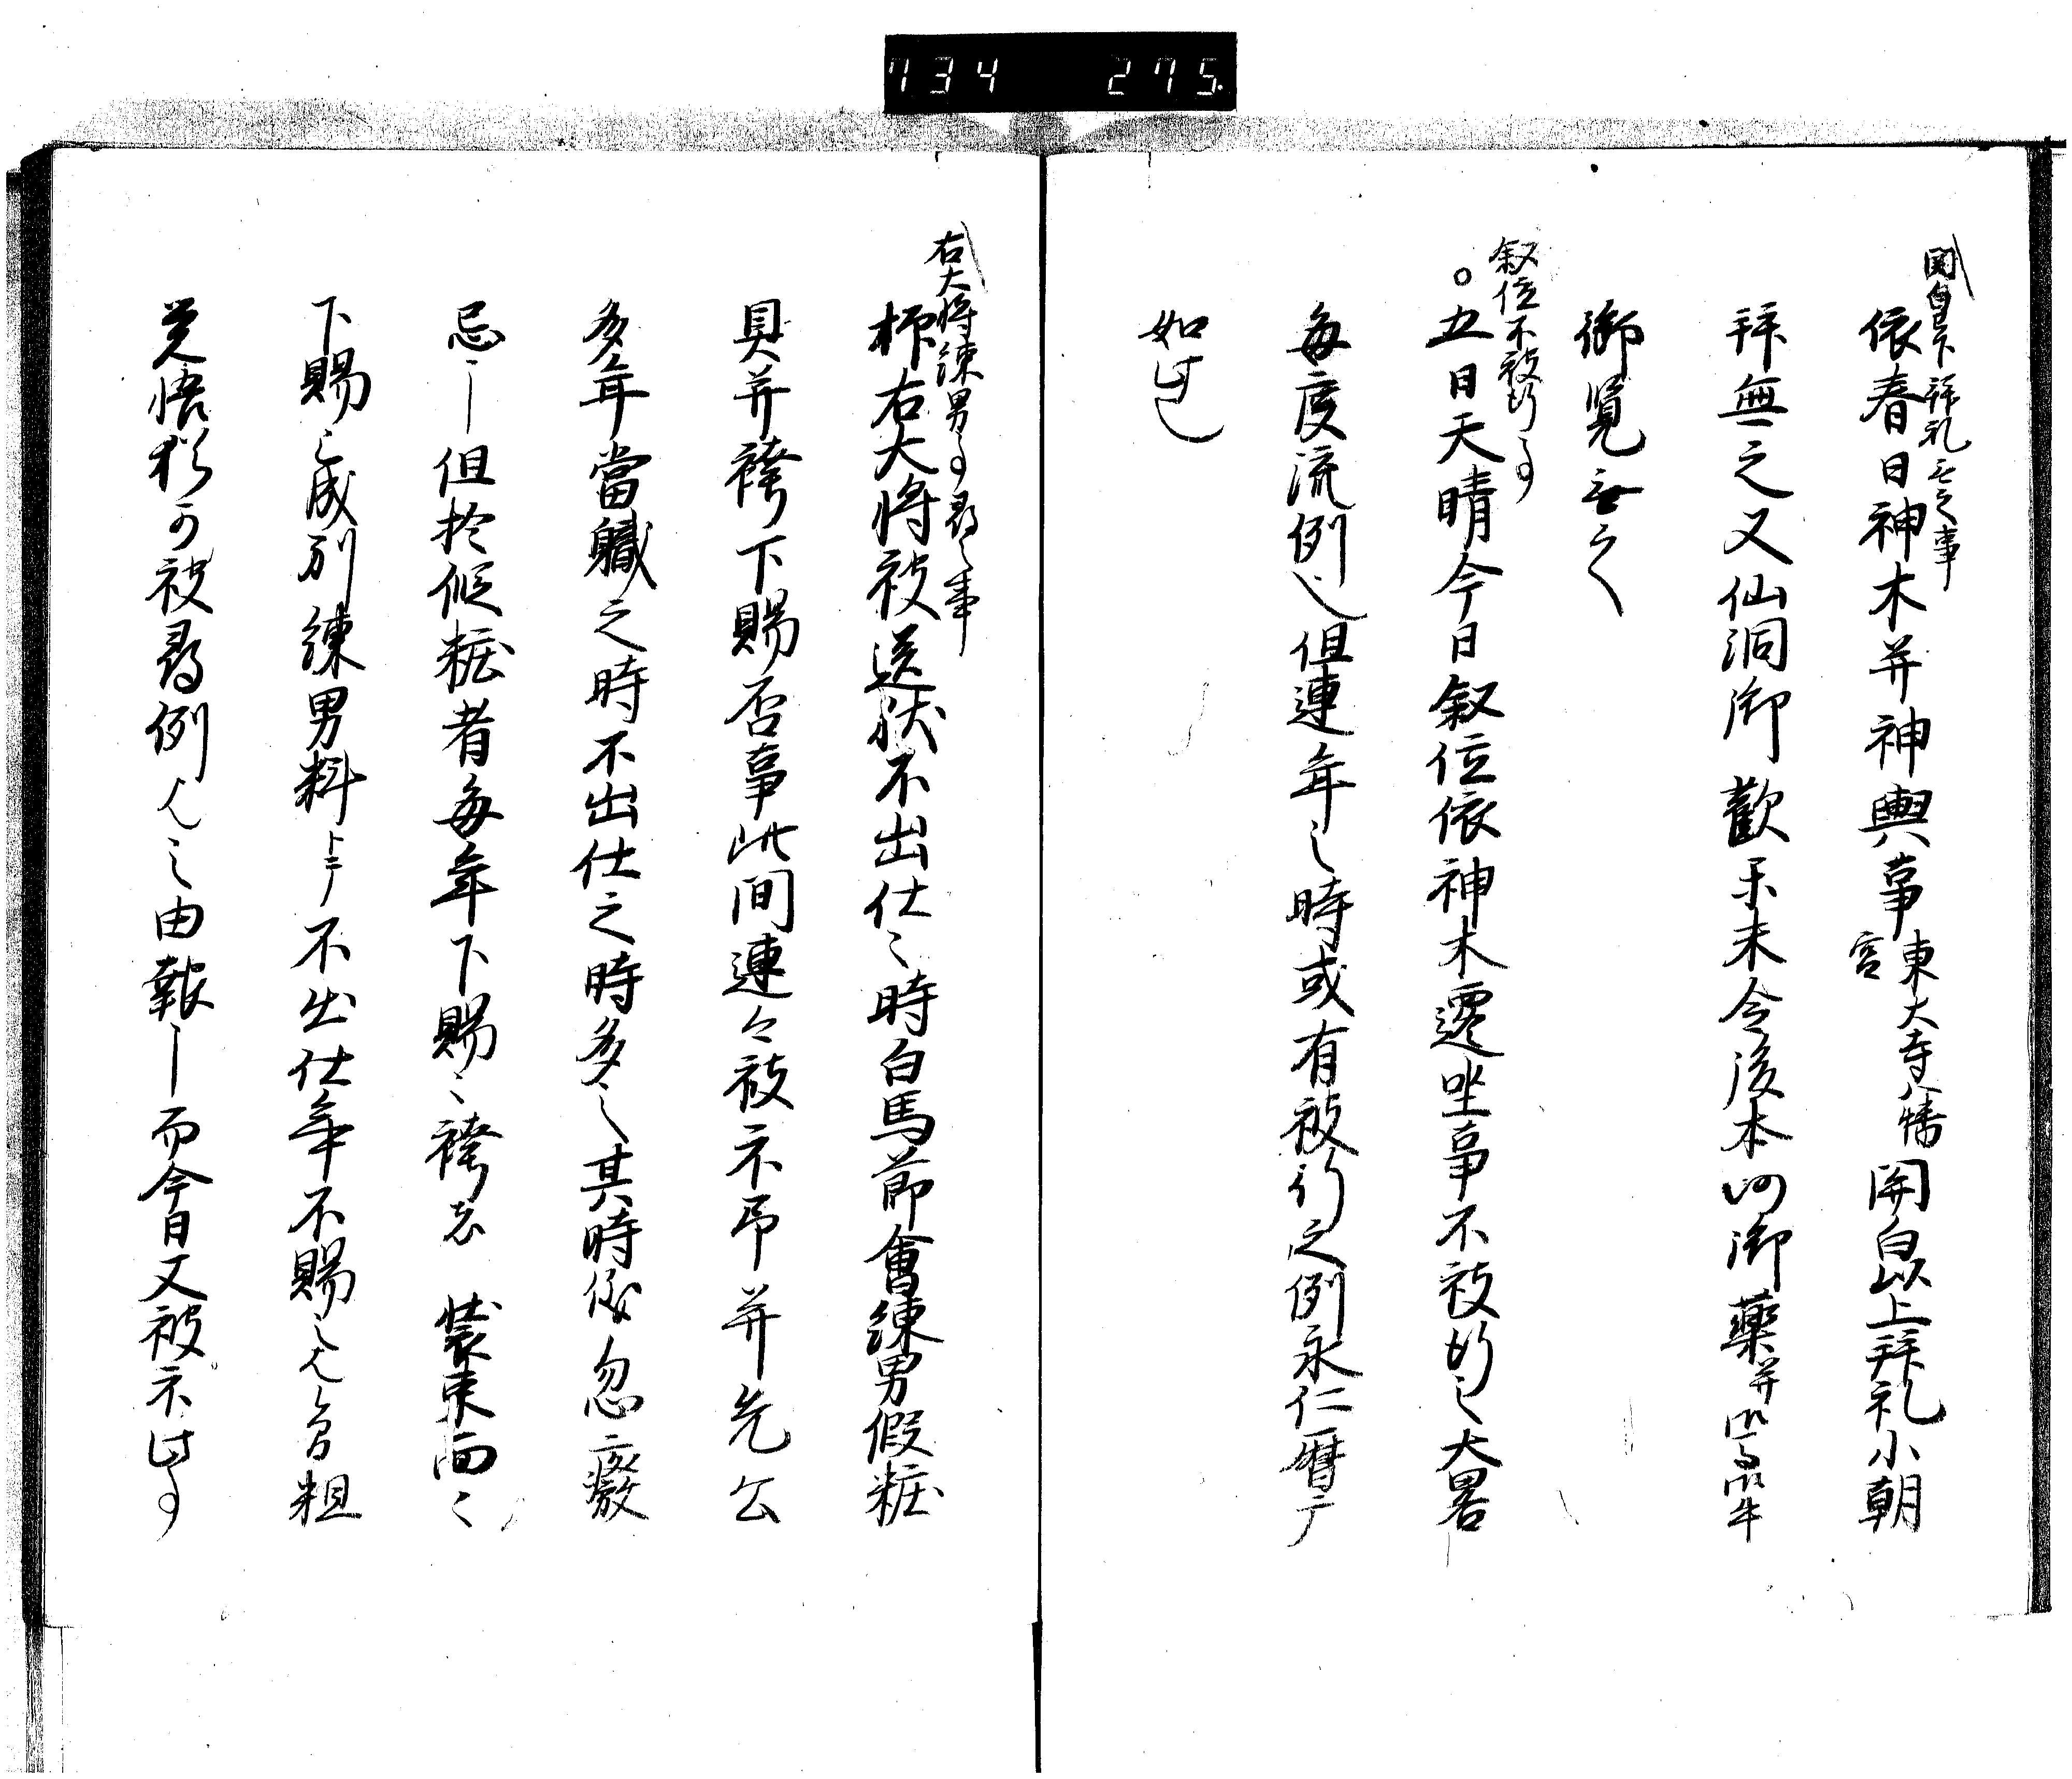 734 275
関白已下拝礼無之事
依春日神木并神輿事東大寺八幡宮関白以上拝礼小朝
拝無之又仙洞御歓楽未令復本御御薬并
御覧無之
叙位不被行事
○五日天晴今日叙位依神木遷坐事不被行之大畧
毎度流例也但連年之時或有被行之例永仁暦广
如此也
右大将練男事尋之事
抑右大将被送状不出仕之時白馬節會練男假粧
具并袴下賜否事此間連々被示予并先公
多年當職之時不出仕之時多之其時儀忽癈
忌之但於假粧者毎年下賜之袴者装束面之
下賜之成別練男料歟不出仕年不賜之
覚悟猶可被尋例之由報之而今日又被示此事